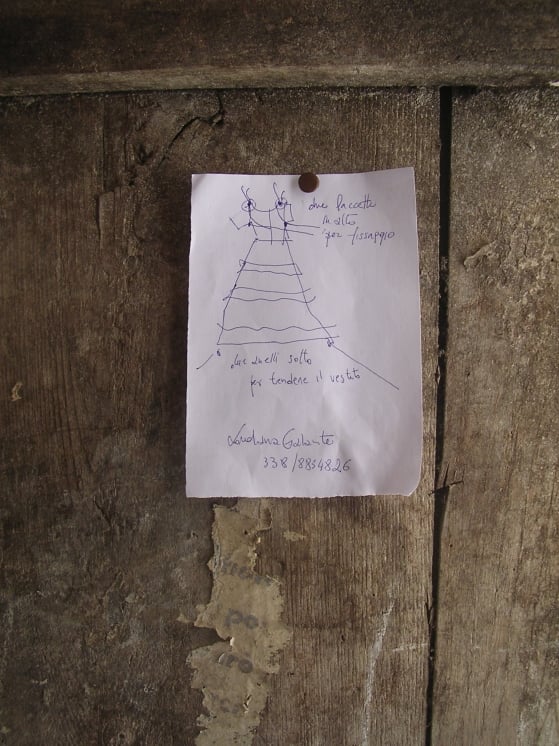 due
in alto
per fissaggio
due anelli sotto
per tendere il vestito
Galante
338/8834826
po
ro